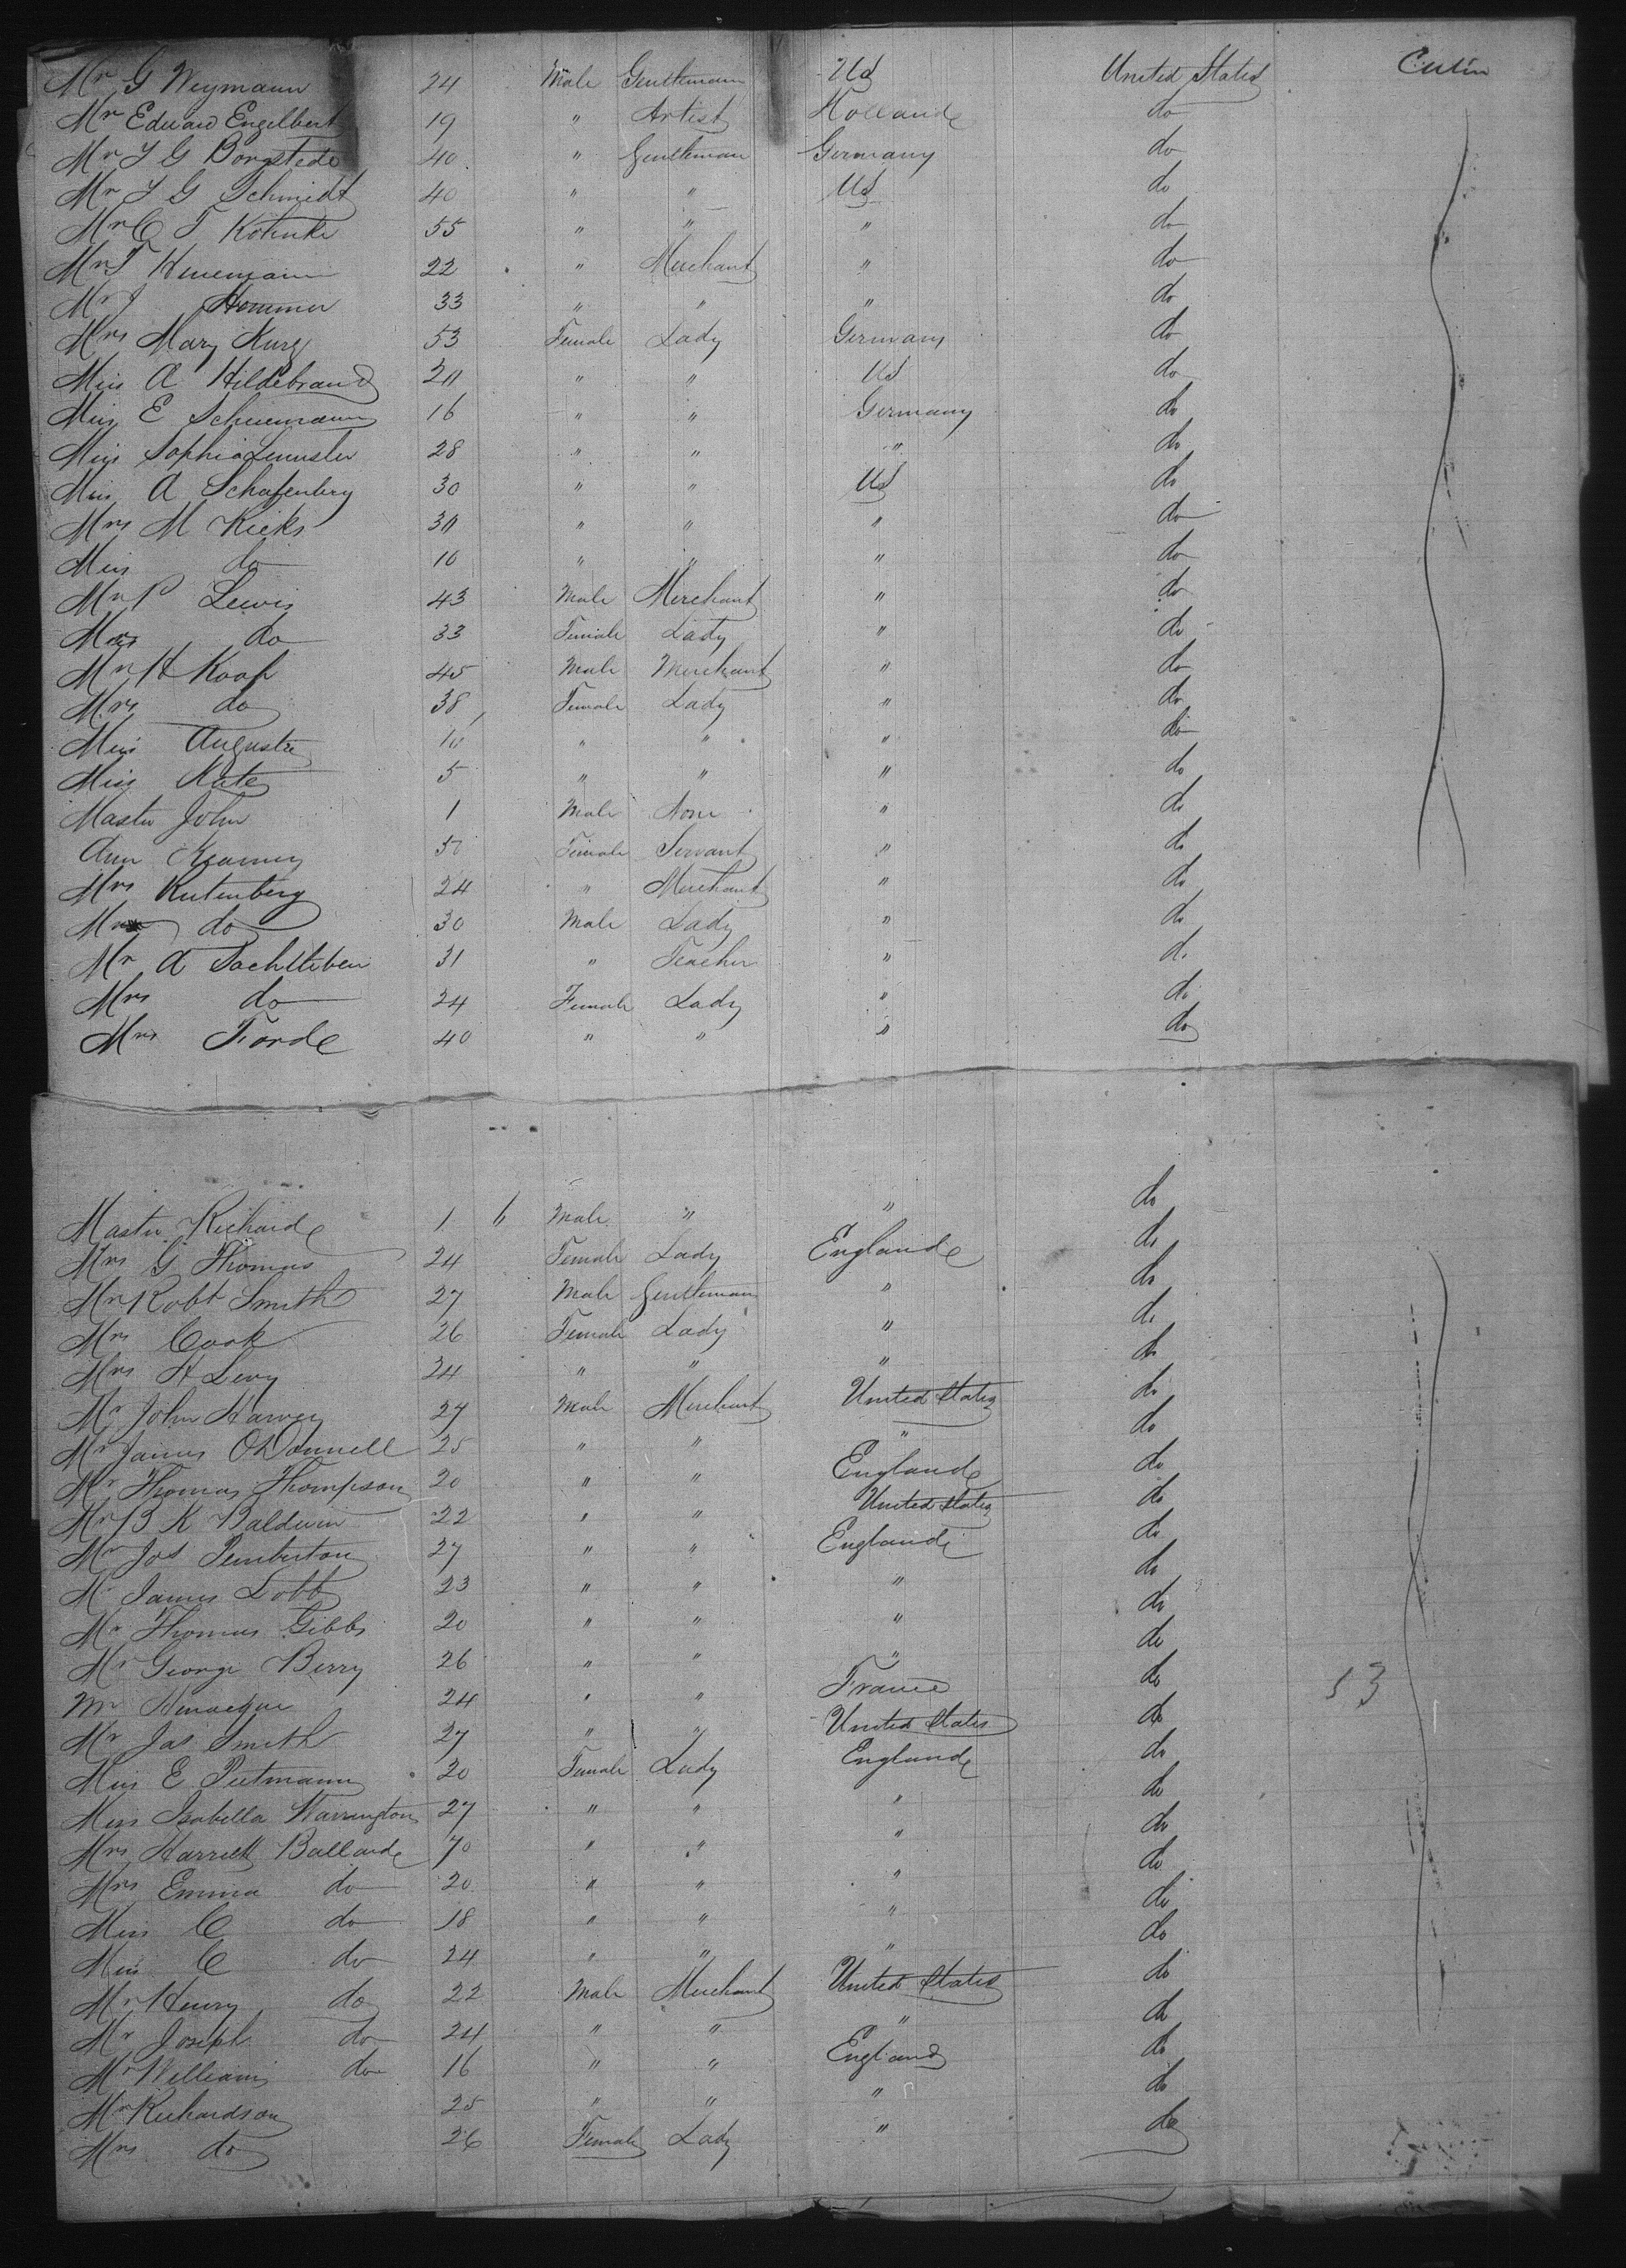 Mr G Weymann 24 Male Gentleman US United States Cabin
Mr Edward Engelbert 19 " Artist Holland do
Mr J G Borgstede 40 " Gentleman Germany do
Mr J G Schmidt 40 " " US do
Mr C T Kohnke 55 " " " do
Mr F 22 " Merchant " do
Mr J Hommer 33 " " " do
Mrs Mary Kurz 53 Female Lady Germany do
Miss A Hildebrand " " US do
Miss E Schuemann 16 " " Germany do
Miss Sophia 28 " " " do
Miss A Schafenberg 30 " " US do
Mrs M Kieks " " " do
Miss do 10 " " " do
Mr P Lewis 43 Male Merchant " do
Mrs do 33 Female Lady " do
Mr H Koop 45 Male Merchant " do
Mrs do 38 Female Lady " do
Miss Auguste 10 " " " do
Miss Kate 5 " " " do
Master John 1 Male None " do
Ann Kearney Female Servant " do
Mrs Rutenberg 24 " Merchant " do
Mr do 30 Male Lady " do
Mr A Sachtleben 31 " Teacher " do
Mrs do 24 Female Lady " do
Mrs Forde 40 " " " do
Master Richard 1 6 Male " " do
Mrs G Thomas 24 Female Lady England do
Mr Robt Smith 27 Male Gentleman " do
Mrs Cook 26 Female Lady " do
Mrs H Levy 24 " " " do
Mr John Harvey 27 Male Merchant United States do
Mr James ODonnell 25 " " " do
Mr Thomas Thompson 20 " " England do
Mr B K Baldwin 22 " " United States do
Mr Jos Pemberton 27 " " England do
Mr James Lobb 23 " " " do
Mr Thomas Gibbs 20 " " " do
Mr George Berry 26 " " " do
Mr 24 " " France do 53
Mr Jas Smith 27 " " United States do
Miss E Pietmann 20 Female Lady England do
Miss Isabella Warrington 27 " " " do
Mrs Harriett Ballard 70 " " " do
Mrs Emma do 20 " " " do
Miss C do 18 " " " do
Miss C do 24 " " " do
Mr Henry do 22 Male Merchant United States do
Mr Joseph do 24 " " " do
Mr William do 16 " " England do
Mr Richardson 25 " " " do
Mrs do 26 Female Lady " do